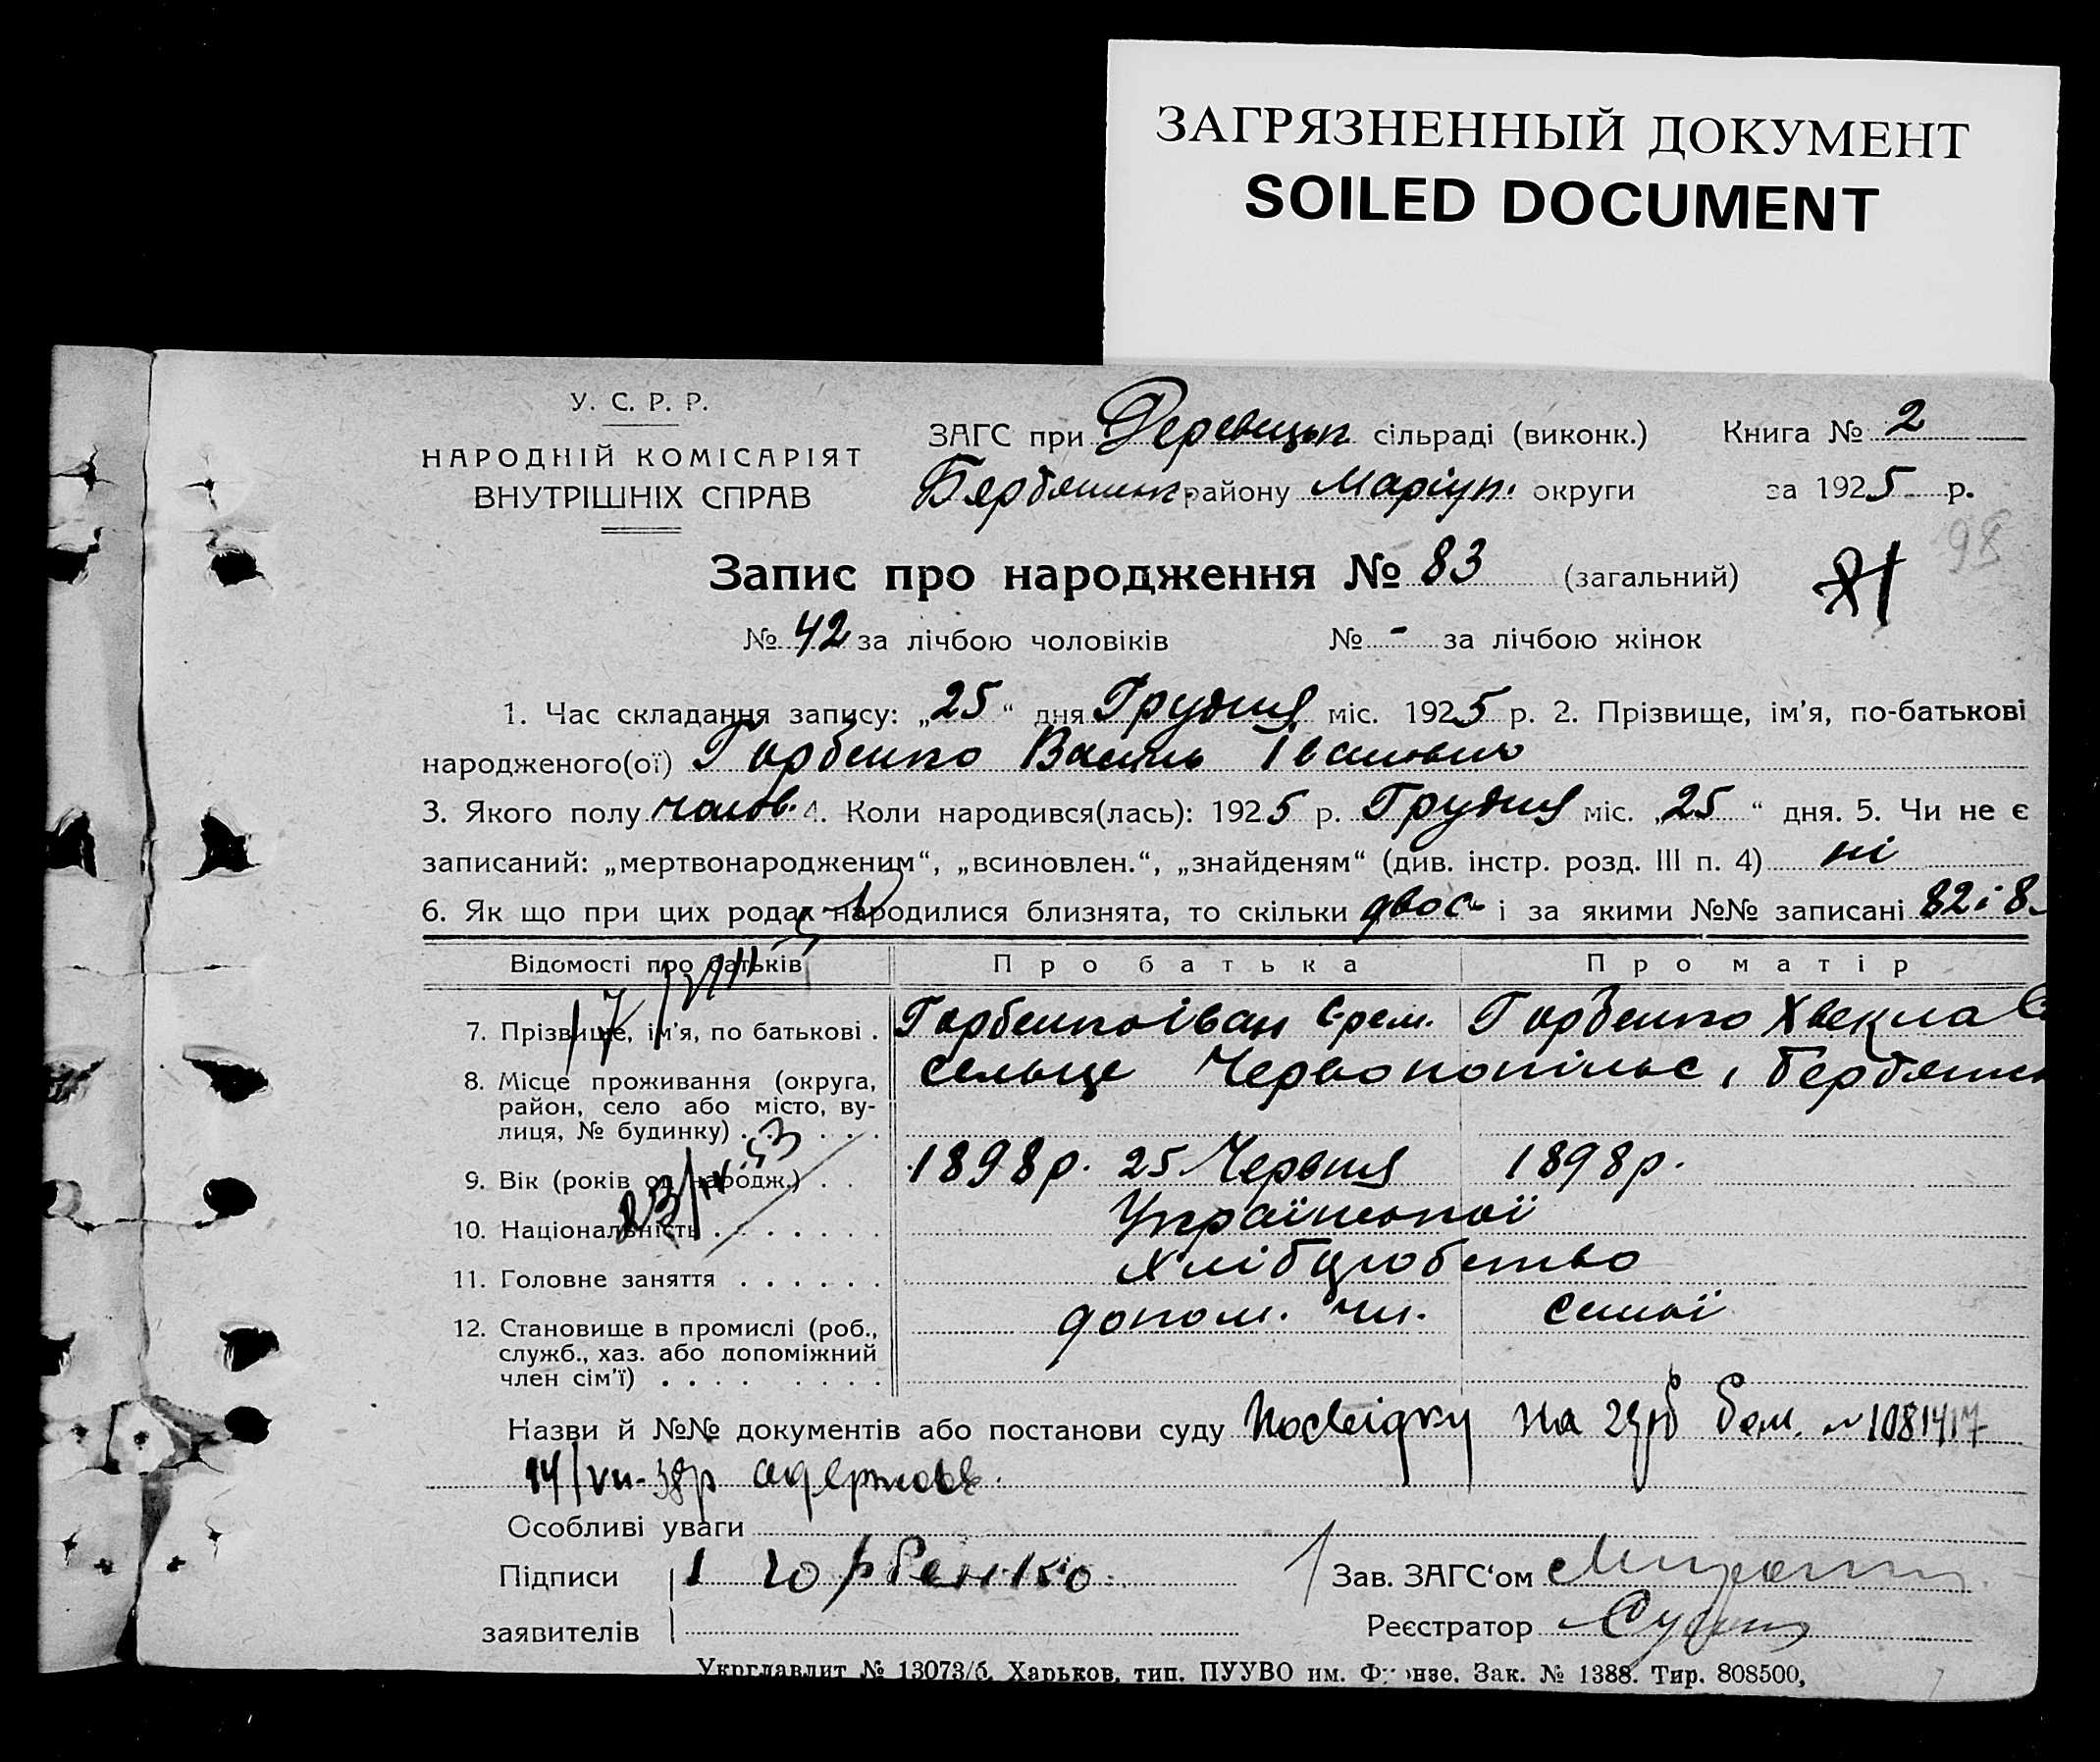 ЗАГРЯЗНЕННЫЙ ДОКУМЕНТ
SOILED DOCUMENT
У. С. Р. Р.
НАРОДНІЙ КОМІСАРІЯТ
ВНУТРІШНІХ СПРАВ
ЗАГС при сільраді (виконк.) Книга № 2
району Маріуп. округи за 1925 р.
98
Запис про народження № 83 (загальний)
№ 42 за лічбою чоловіків № - за лічбою жінок
1. Час складання запису: „25“ дня Грудня міс. 1925 р. 2. Прізвище, ім’я, по-батькові
народженого(ої) Горбенко Василь Іванович
3. Якого полу чолов. 4. Коли народився(лась): 1925 р. Грудня міс. „25“ дня. 5. Чи не є
записаний: „мертвонародженим“, „всиновлен.“, „знайденям“ (див. інстр. розд. III п. 4) ні
6. Як що при цих родах народилися близнята, то скільки двоє і за якими №№ записані 82 і 8
Відомості про батьків Про батька Про матір
7. Прізвище, ім’я, по батькові . Горбенко Іван Єрем. Горбенко Хвекла
8. Місце проживання (округа, сельце
район, село або місто, ву-
лиця, № будинку) . . . . .
9. Вік (років од народж.) . . 1898р. 25 Червня 1898р.
10. Національність . . . . . . . Української
11. Головне заняття . . . . . . Хліборобство
12. Становище в промислі (роб., допом. чл. семьї
служб., хаз. або допоміжний
член сім’ї) . . . . . . . .
Назви й №№ документів або постанови суду Посвідку на №1081417
14/VII-38р одержав.
Особливі уваги
Підписи І Горбенко Зав. ЗАГС‘ом
заявителів Реєстратор
Укрглавлит № 13073/б. Харьков, тип. ПУУВО им. Фрунзе. Зак. № 1388. Тир. 808500,